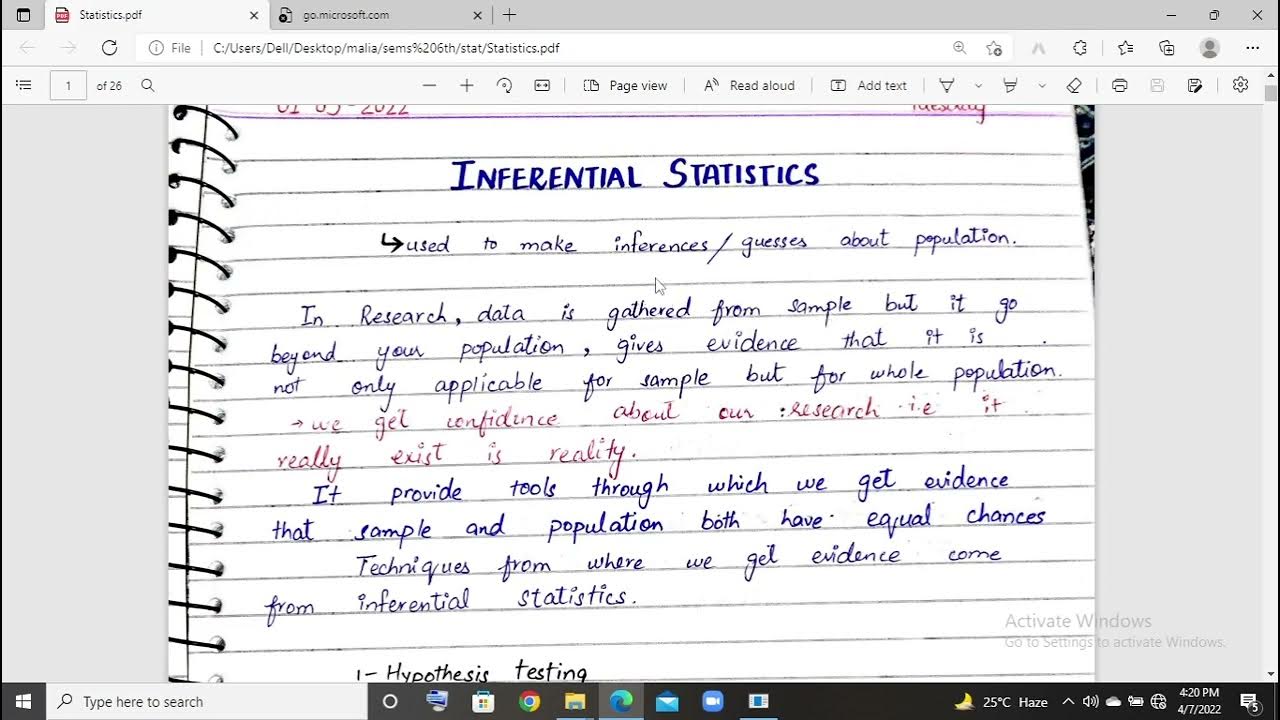 Statistics.pdf
go.microsoft.com
File C:/Users/Dell/Desktop/malia/sems%206th/stat/Statistics.pdf
1 of 26 Page view Read aloud Add text
01 03-2022 Tuesday
INFERENTIAL STATISTICS
↳used to make inferences/guesses about population.
In Research, data is gathered from sample but it go
beyond your population, gives evidence that it is
not only applicable for sample but for whole population.
→ we get confidence about our :research i.e it
really exist is reality.
It provide tools through which we get evidence
that sample and population both have equal chances
Techniques from where we get evidence come
from inferential statistics.
1- Hypothesis testing
Activate Windows
Go to Settings to activate Windows.
Type here to search
25°C Haze
4:20 PM
4/7/2022